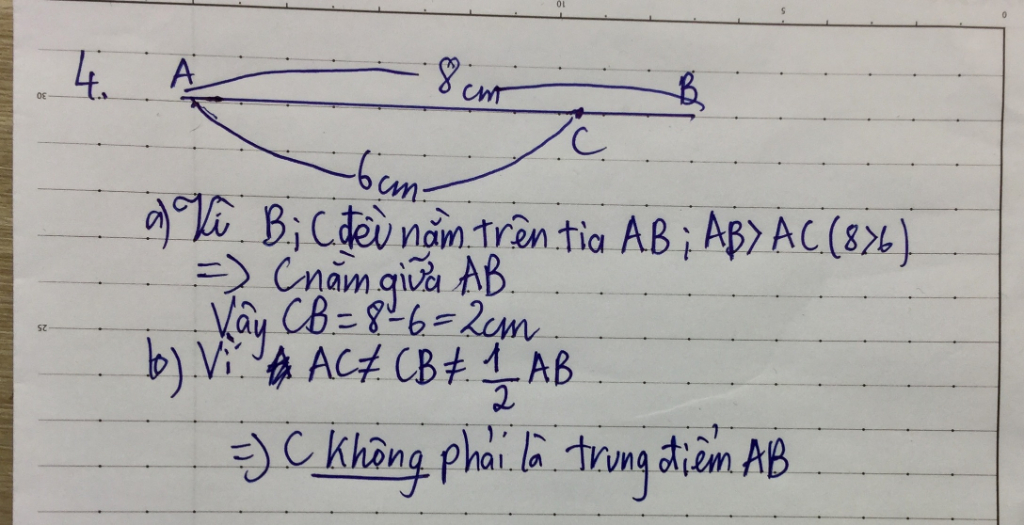 0
5
10
4. A 8 cm B
30
C
6 cm
a) Vì B; C đều nằm trên tia AB; AB > AC (8>6)
=> C nằm giữa AB
Vậy CB = 8 - 6 = 2cm
25
b) Vì AC ≠ CB ≠ 1/2 AB
=> C không phải là trung điểm AB